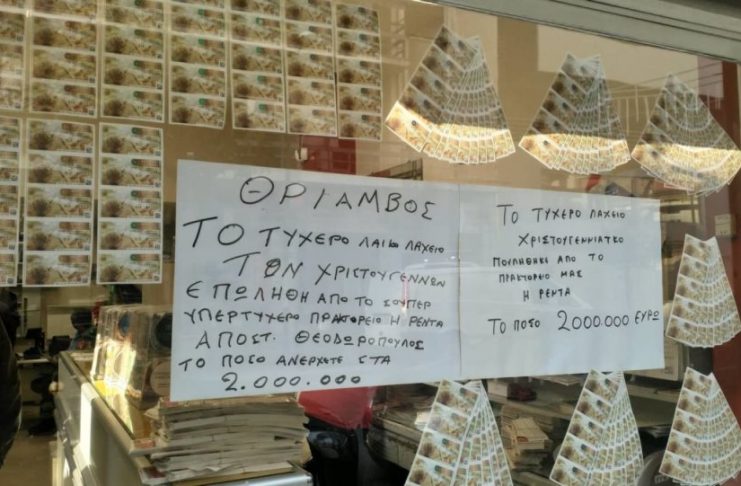 ΘΡΙΑΜΒΟΣ
ΤΟ ΤΥΧΕΡΟ ΛΑΙΚΟ ΛΑΧΕΙΟ
ΤΩΝ ΧΡΙΣΤΟΥΓΕΝΝΩΝ
ΕΠΩΛΗΘΗ ΑΠΟ ΤΟ ΣΟΥΠΕΡ
ΥΠΕΡΤΥΧΕΡΟ ΠΡΑΚΤΟΡΕΙΟ Η ΡΕΝΤΑ
ΑΠΟΣΤ. ΘΕΟΔΩΡΟΠΟΥΛΟΣ
ΤΟ ΠΟΣΟ ΑΝΕΡΧΕΤΕ ΣΤΑ
2.000.000
ΤΟ ΤΥΧΕΡΟ ΛΑΧΕΙΟ
ΧΡΙΣΤΟΥΓΕΝΝΙΑΤΚΟ
ΠΟΥΛΗΘΗΚΙ ΑΠΟ ΤΟ
ΠΡΑΚΤΟΡΕΙΟ ΜΑΣ
Η ΡΕΝΤΑ
ΤΟ ΠΟΣΟ 2000.000 ΕΥΡΩ